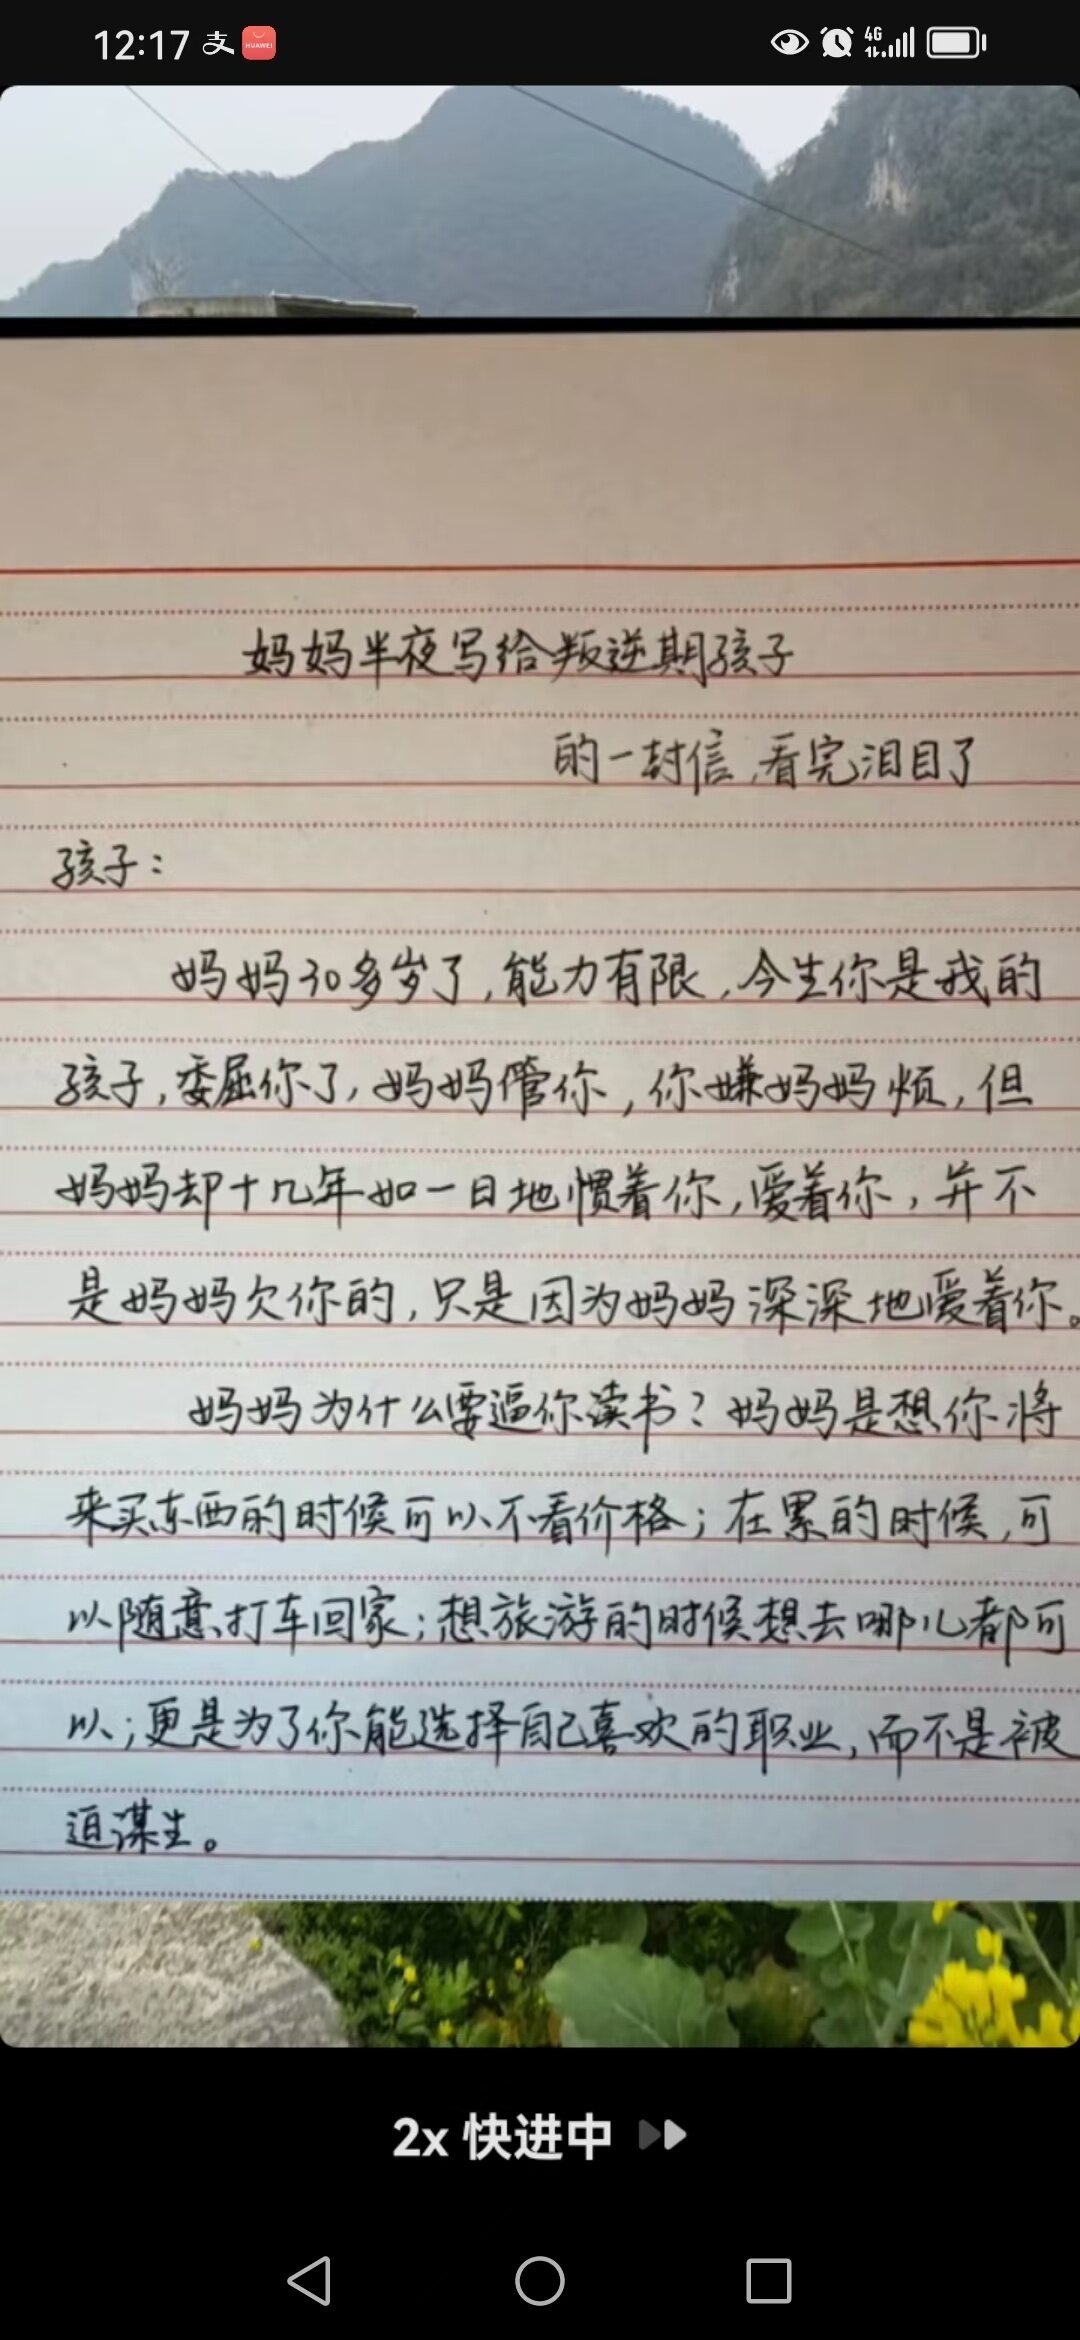 12:17 支 HUAWEI 4G
妈妈半夜写给叛逆期孩子
的一封信,看完泪目了
孩子：
妈妈30多岁了,能力有限,今生你是我的
孩子,委屈你了,妈妈管你,你嫌妈妈烦,但
妈妈却十几年如一日地惯着你,爱着你,并不
是妈妈欠你的,只是因为妈妈深深地爱着你。
妈妈为什么要逼你读书?妈妈是想你将
来买东西的时候可以不看价格;在累的时候,可
以随意打车回家;想旅游的时候想去哪儿都可
以;更是为了你能选择自己喜欢的职业,而不是被
迫谋生。
2x 快进中